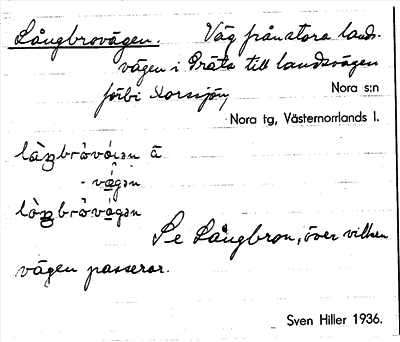 Långbrovägen. Väg från stora lands-
vägen i Präta till landsvägen
förbi Norrsjön,
Nora s:n
Nora tg, Västernorrlands l.
Se Långbron, över vilken
vägen passerar.
Sven Hiller 1936.